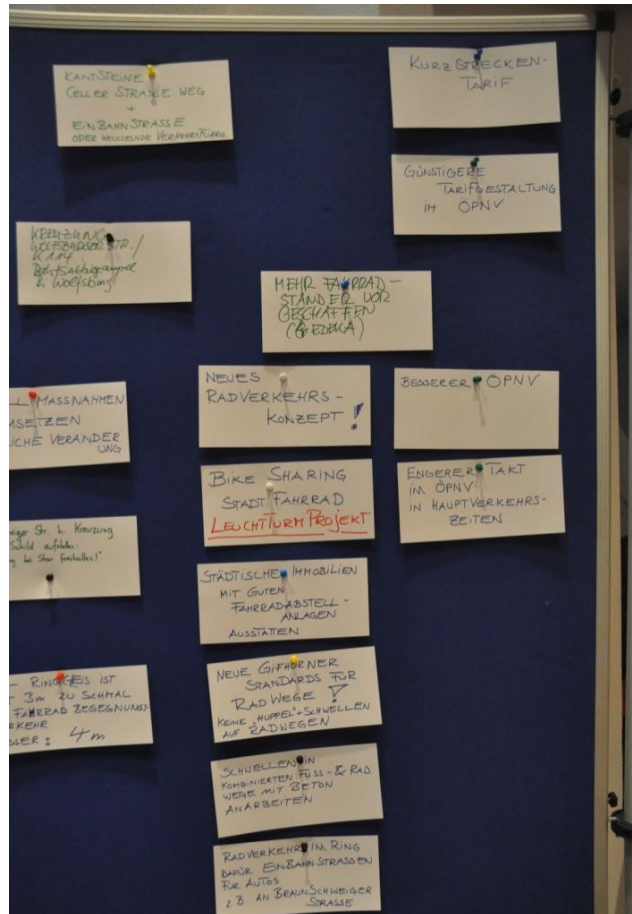 KANTSTEINE
CELLER STRASSE WEG
+
EINBAHNSTRASSE
ODER WECHSELNDE VERKEHRSFÜHRG.
KREUZUNG
WOLFSBURGER STR./
K114
n. Wolfsburg
MASSNAHMEN
MSETZEN
LICHE VERÄNDER
UNG
Str. h. Kreuzung
Schild aufstellen:
bei Stau freihalten!"
- RINGGLEIS IST
3m ZU SCHMAL
FAHRRAD BEGEGNUNGS-
RKEHR
SSER: 4m
MEHR FAHRRAD-
STÄNDER VOR
GESCHÄFTEN
EDEKA)
NEUES
RADVERKEHRS-
KONZEPT !
BIKE SHARING
STADT FAHRRAD
LEUCHTTURM PROJEKT
STÄDTISCHE IMMOBILIEN
MIT GUTEN
FAHRRADABSTELL-
ANLAGEN
AUSSTATTEN
NEUE GIFHORNER
STANDARDS FÜR
RADWEGE !
KEINE "HUPPEL"-SCHWELLEN
AUF RADWEGEN
SCHWELLEN IN
KOMBINIERTEN FUSS- & RAD
WEGE MIT BETON
ANARBEITEN
RADVERKEHR IM RING
DAFÜR EINBAHNSTRASSEN
FÜR AUTOS
z.B. AN BRAUNSCHWEIGER
STRASSE
KURZSTRECKEN-
TARIF
GÜNSTIGERE
TARIFGESTALTUNG
IM ÖPNV
BESSERER ÖPNV
ENGERER TAKT
IM ÖPNV
IN HAUPTVERKEHRS-
ZEITEN